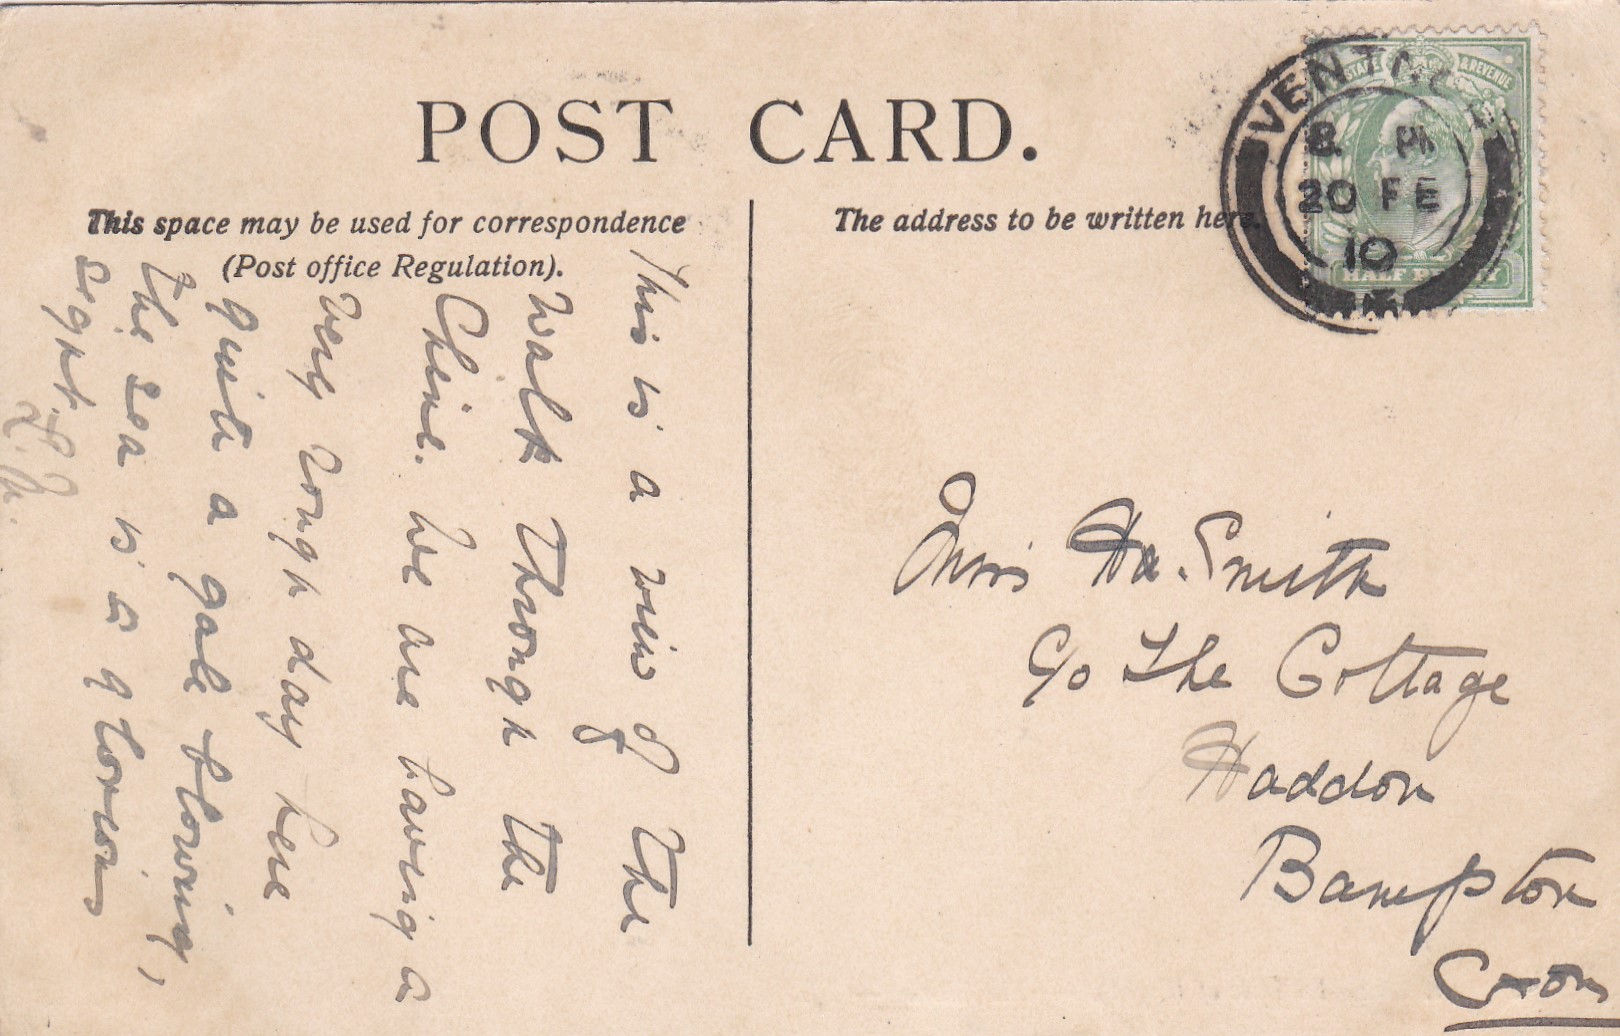 POST CARD.
This space may be used for correspondence
(Post office Regulation).
The address to be written here.
VENTNOR
8 PM
20 FE
10
POSTAGE & REVENUE
HALF PENNY
This is a view of the
walk through the
Chine. We are having a
very rough day here
quite a gale blowing,
the sea is a glorious
sight.
Miss Ha. Smith
C/o The Cottage
Haddon
Bampton
Oxon